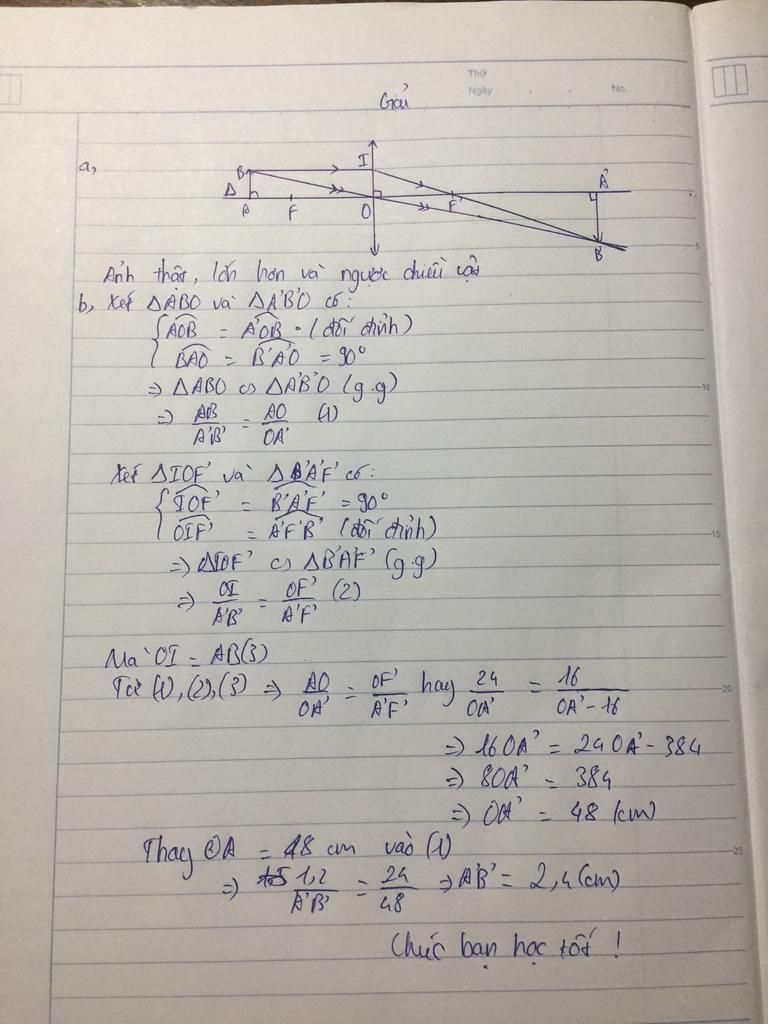 Thứ
Ngày . . No.
Giải
a,
B I A'
Δ A F O F' B'
Ảnh thật, lớn hơn và ngược chiều vật
b, Xét ΔABO và ΔA'B'O có:
AOB = A'OB' (đối đỉnh)
BAO = B'A'O = 90°
=> ΔABO ∽ ΔA'B'O (g.g)
=> AB/A'B' = AO/OA' (1)
Xét ΔIOF' và ΔB'A'F' có:
IOF' = B'A'F' = 90°
OIF' = A'F'B' (đối đỉnh)
=> ΔIOF' ∽ ΔB'A'F' (g.g)
=> OI/A'B' = OF'/A'F' (2)
Mà OI = AB (3)
Từ (1), (2), (3) => AO/OA' = OF'/A'F' hay 24/OA' = 16/OA' - 16
=> 16OA' = 24OA' - 384
=> 8OA' = 384
=> OA' = 48 (cm)
Thay OA = 48 cm vào (1)
=> 1,2/A'B' = 24/48 => A'B' = 2,4 (cm)
Chúc bạn học tốt !
5
10
15
20
25